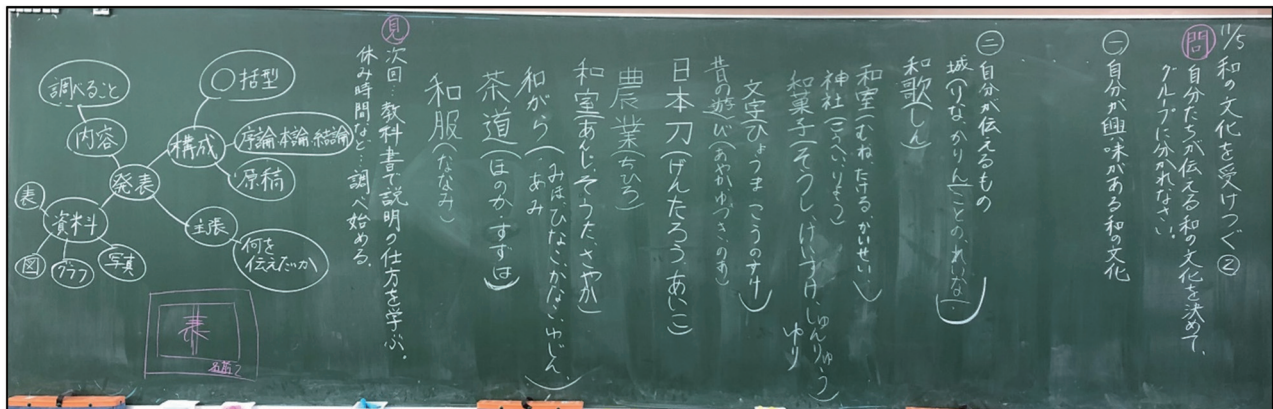 11/5 和の文化を受けつぐ ②
問 自分たちが伝える和の文化を決めて、
グループに分かれなさい。
一 自分が興味がある和の文化
二 自分が伝えるもの
城(りな、かりん、ことの、れいな)
和歌(しん)
和室(むね、たける、かいせい)
神社(こうへい、りょう)
和菓子(そうし、けいすけ、しゅんりゅう
ゆり
文字(ひょうま、こうのすけ)
昔の遊び(あやか、ゆづき、のあ)
日本刀(げんたろう、あいこ)
農業(ちひろ)
和室(あんじ、そうた、さやか)
和がら(みほ、ひな、かな、ゆじん、
あみ
茶道(ほのか、すずは)
和服(ななみ)
見 次回…教科書で説明の仕方を学ぶ。
休み時間など…調べ始める。
発表
構成
〇括型
序論・本論・結論
原稿
内容
調べること
主張
何を
伝えたいか
資料
表
図
グラフ
写真
表
名前